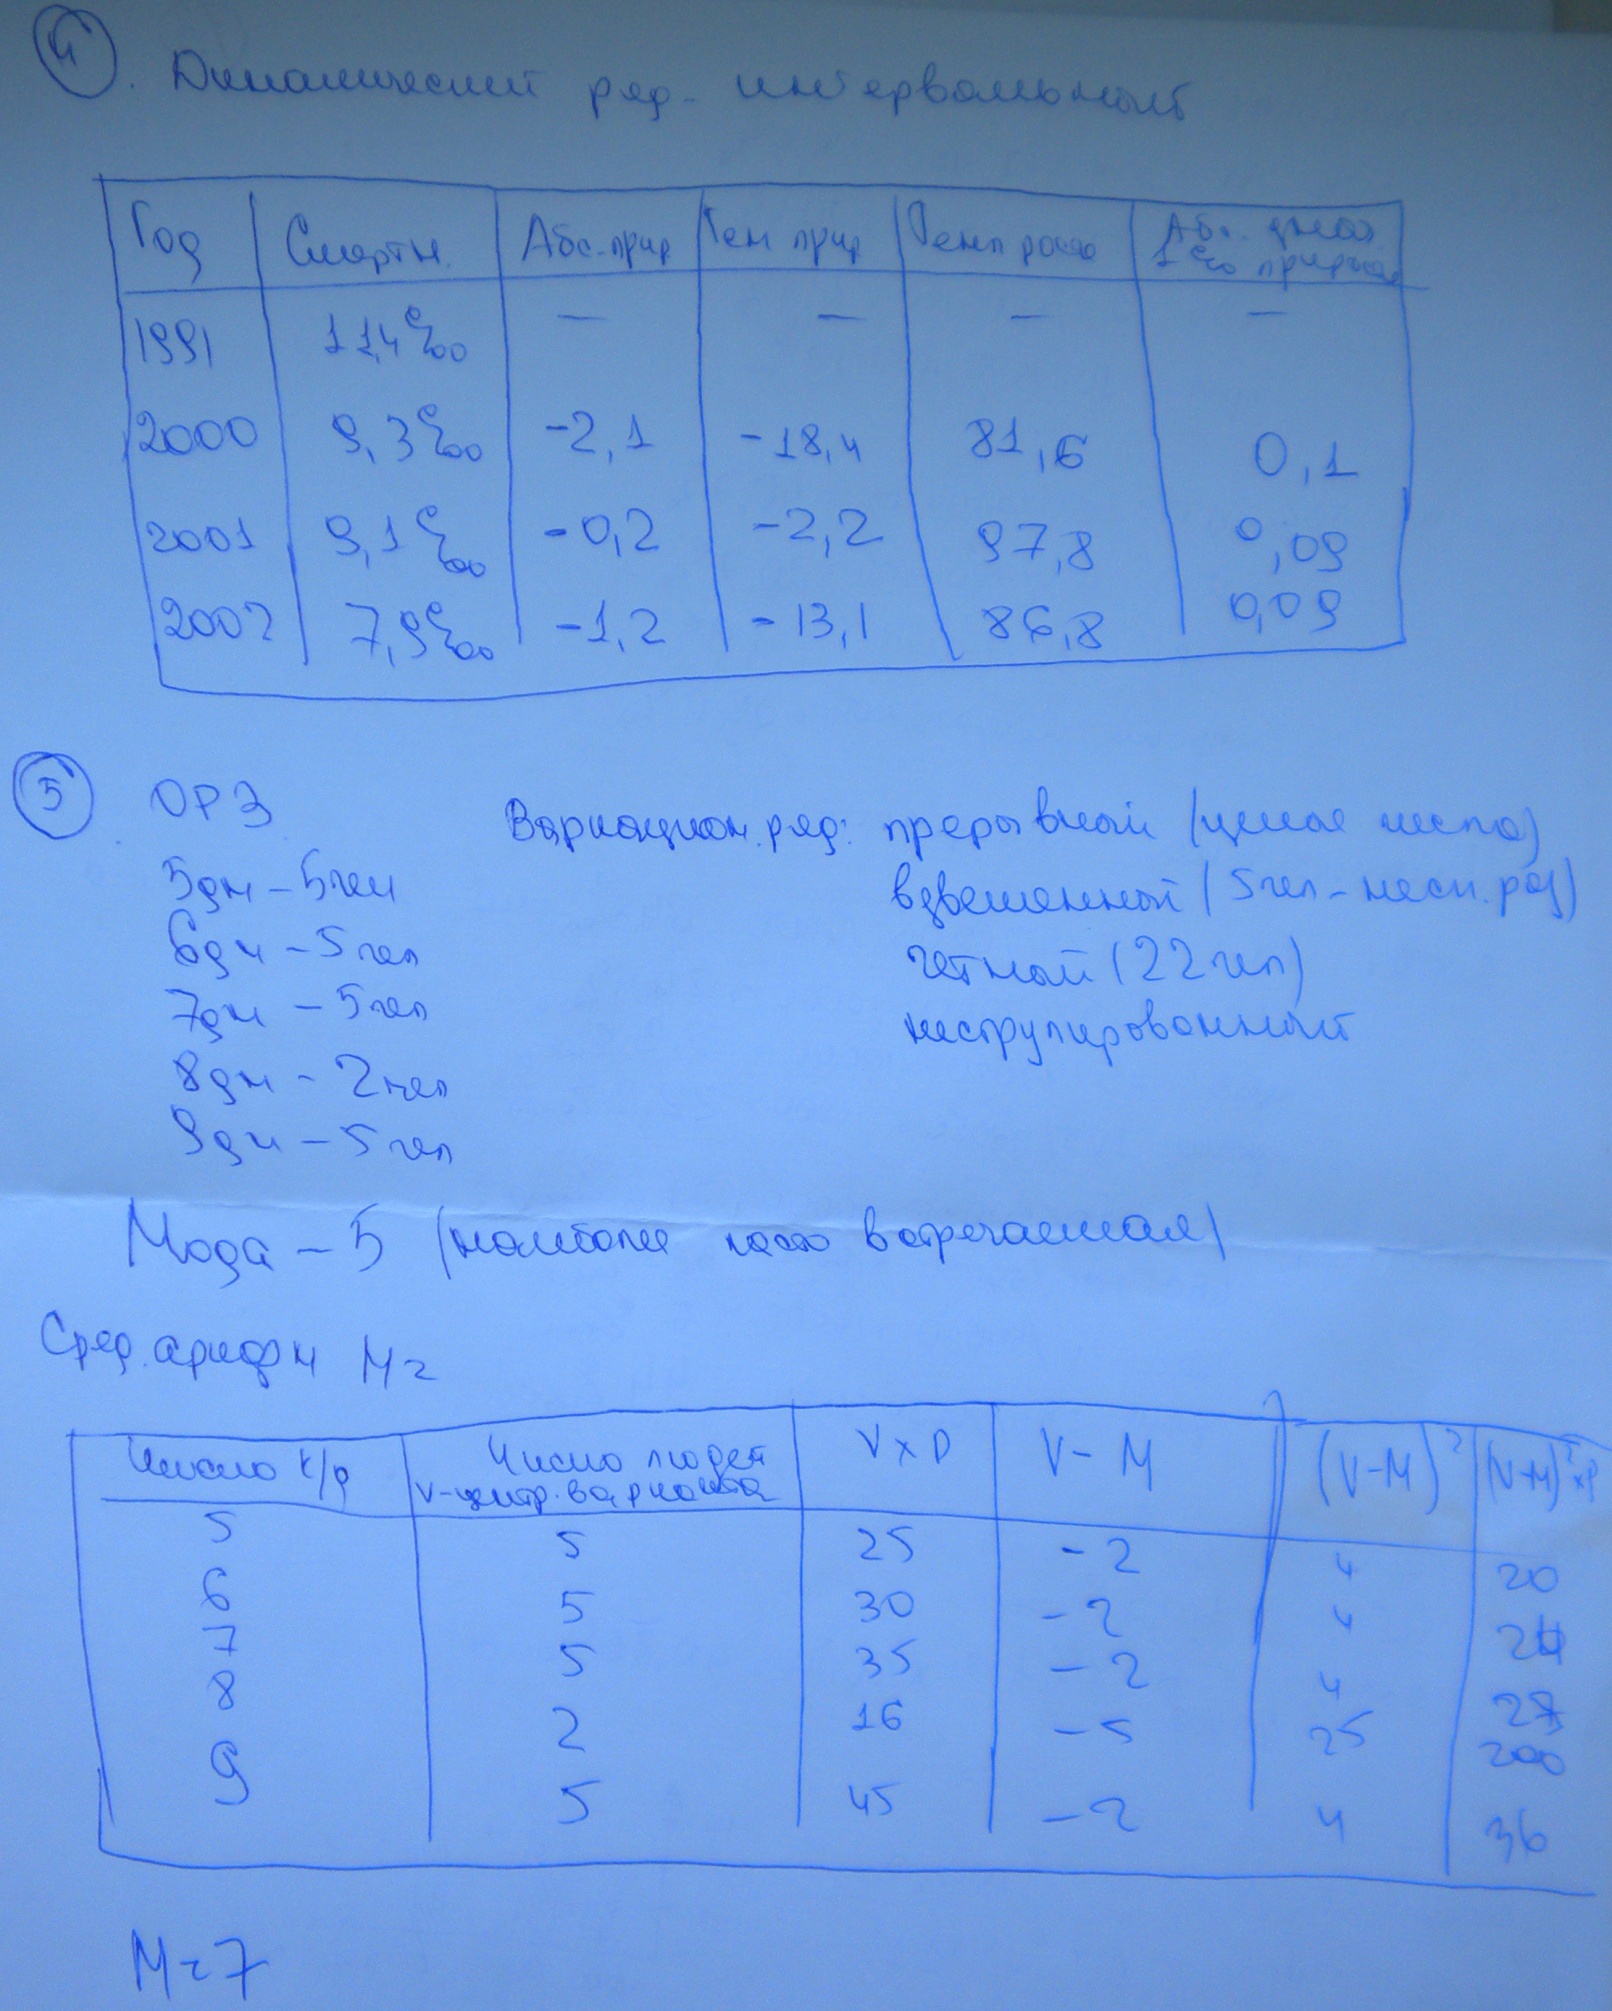 4. Динамический ряд - интервальный
Год Смертн. Абс. прир Тем прир Темп роста Абс. знач. 1‰ прироста
1991 11,4‰ — — — —
2000 9,3‰ -2,1 -18,4 81,6 0,1
2001 9,1‰ -0,2 -2,2 97,8 0,09
2002 7,9‰ -1,2 -13,1 86,8 0,09
5 ОРЗ Вариацион. ряд: прерывный (целое число)
5дн - 5чел взвешенный (5чел - неск. раз)
6дн - 5чел четный (22чел)
7дн - 5чел несгрупированный
8дн - 2чел
9дн - 5чел
Мода - 5 (наиболее часто встречаемая)
Сред. арифм M=
Число к/д Число людей V-центр. варианта V x P V - M (V-M)² (V-M)² x P
5 5 25 -2 4 20
6 5 30 -2 4 24
7 5 35 -2 4 28
8 2 16 -5 25 200
9 5 45 -2 4 36
M=7